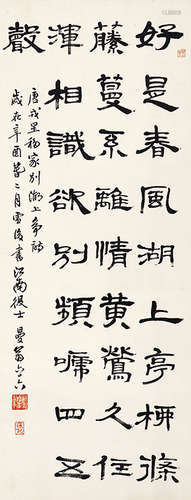 好是春風湖上亭桺條
藤蔓系離情黃鶯久住
渾相識欲別頻嗁四五
聲
唐戎昱移家別湖上亭詩
歲在辛酉春二月雪後書江南後士曼翁六六